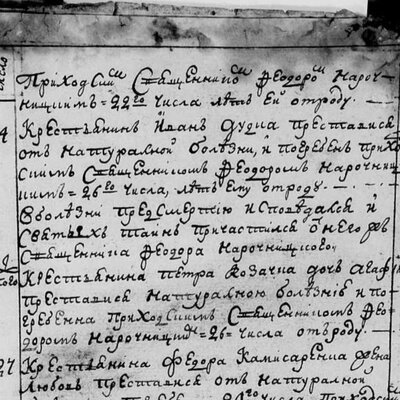 число
Приходскимъ Священникомъ Феодоромъ Нароч-
ницкимъ = 22го числа лѣтъ ей отроду.
4
Крестьянинъ Иванъ Дудка преставися
отъ натуралной болѣзни, и погребенъ прихо
скимъ Священникомъ Феодоромъ Нарочни
кимъ = 26го числа, лѣтъ ему отроду
Вболѣзни предсмертію исповѣдался и
Святыхъ таинъ причастился онего жъ
Священника Феодора Нарочницкого.
Крестьянина Петра Козачка дочь Агаф
преставися натуралною болѣзнію и по-
гребенна приходскимъ Священникомъ Фео-
доромъ Нарочницкимъ = 26 = числа отъроду.
27
Крестьянина Федора Камисаренка жена
Любовь преставися отъ натуралной